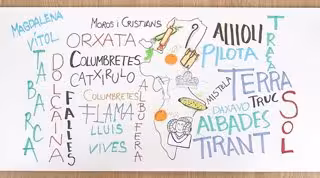 MAGDALENA
VÍTOL
TABARCA
DOLÇAINA
FALLES
MOROS i CRISTIANS
ORXATA
COLUMBRETES
CATXIRULO
COLUMBRETES
FLAMA
LLUIS
VIVES
ALBUFERA
ALLIOLI
PILOTA
TRAÇA
TERRA
MISTELA
TRUC
DAXAVO
ALBADES
TIRANT
SOL